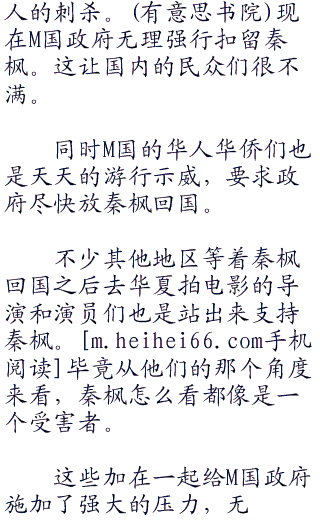 人的刺杀。(有意思书院)现
在M国政府无理强行扣留秦
枫。这让国内的民众们很不
满。
同时M国的华人华侨们也
是天天的游行示威，要求政
府尽快放秦枫回国。
不少其他地区等着秦枫
回国之后去华夏拍电影的导
演和演员们也是站出来支持
秦枫。[m.heihei66.com手机
阅读]毕竟从他们的那个角度
来看，秦枫怎么看都像是一
个受害者。
这些加在一起给M国政府
施加了强大的压力，无